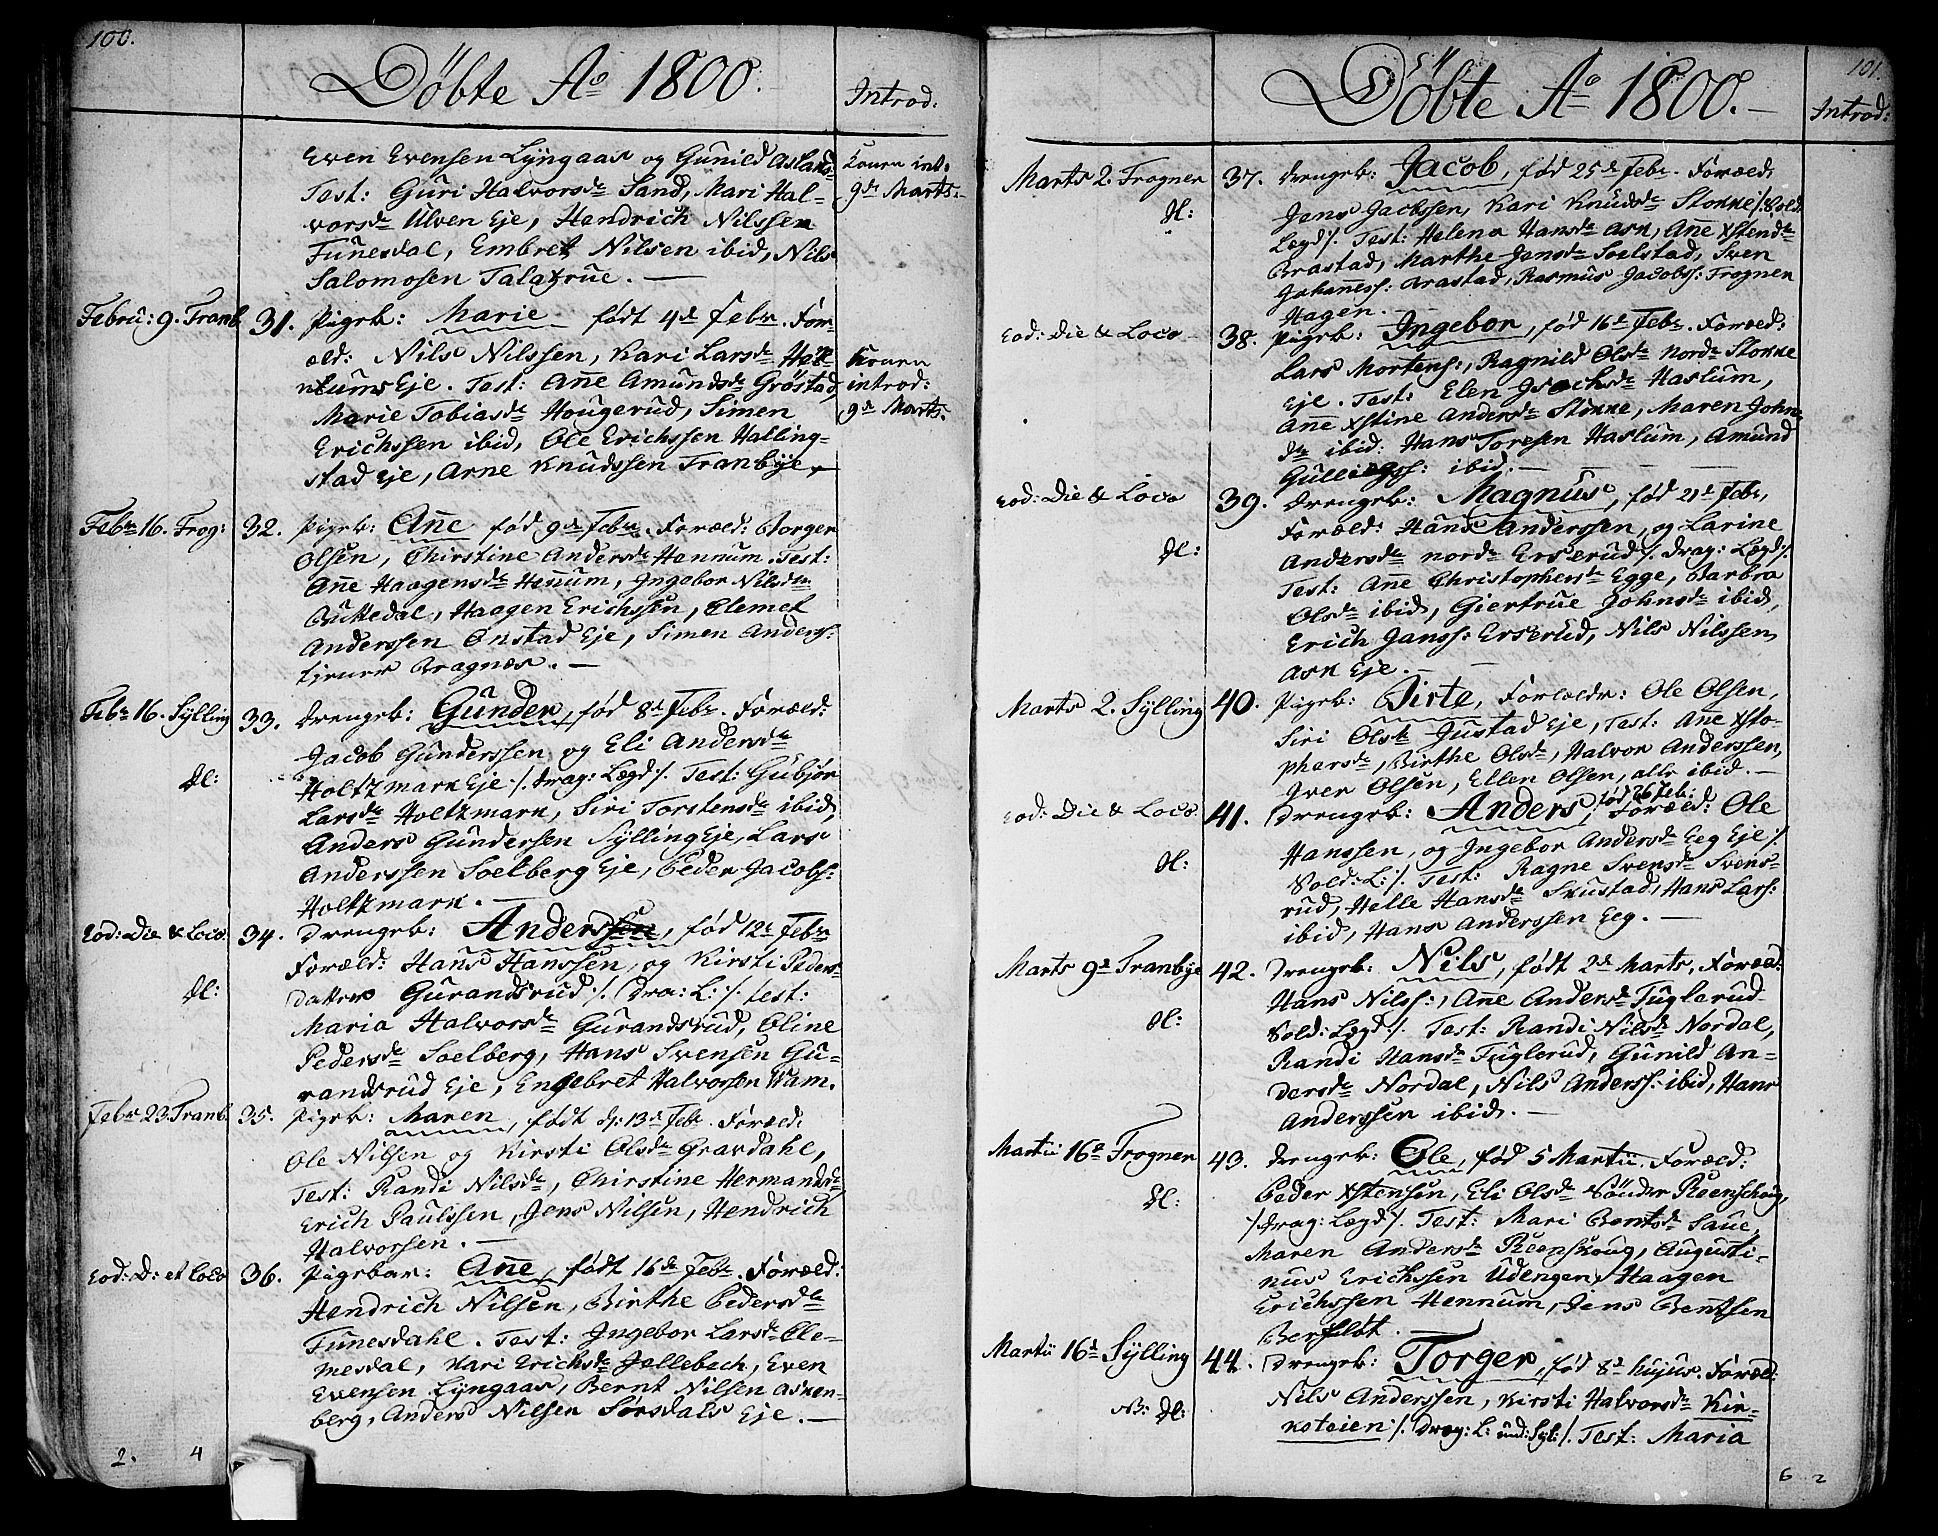 100.
Döbte Aº 1800.
Introd:
Even Evensen Lyngaas og Gunild Aslaks-
Test: Guri Halvorsdr Sand, Mari Hal-
vorsdr Ulven Eje, Hendrich Nilssen
Funesdal, Embret Nilsen ibid, Nils
Salomosen Talatrue. —
Konen int.
9de Marts.
Febru: 9. Tranb. 31. Pigeb: Marie født 4de Febr. For-
æld: Nils Nilssen, Kari Larsdr
Eje. Test: Añe Amundsdr Gröstad,
Marie Tobiasdr Hougerud, Simen
Erichssen ibid, Ole Erichssen Halling-
stad Eje, Arne Knudssen Tranbye
Konen
introd:
9de Marts.
Febr 16. Frog: 32. Pigeb: Añe fød 9de Febr. Foræld: Borger
Olsen, Chirstine Andersdr Hennum. Test:
Añe Haagensdr Heñum, Ingebor Nilsdr
Buttedal, Haagen Erichssen, Clemet
Anderssen Onstad Eje, Simen Anders:
tjener Bragnæs. —
Febr 16. Sylling 33. Drengeb: Gunder, fød 8d Febr. Foræld:
Jacob Gunderssen og Eli Andersdr
Dl: Holtzmark Eje /: Drag: Lægd :/ Test: Gubjør
Larsdr Holtzmark, Siri Torstensdr ibid,
Anders Gundersen Sylling Eje, Lars
Anderssen Soelberg Eje, Peder Jacobs:
Holtzmark. —
Eod: Die & Loco. 34. Drengeb: Anderssen, fød 12te Febr
Foræld: Hans Hanssen, og Kirsti Peders-
Dl: datter Gurandsrud /: Dra: L: /: Test:
Maria Halvorsdr Gurandsrud, Oline
Pedersdr Soelberg, Hans Svensen Gu-
randsrud Eje, Engebret Halvorsen Wam.
Febr 23. Tranb. 35. Pigeb: Maren, født d: 13d Febr. Foræld:
Ole Nilsen og Kirsti Olsdr Gravdahl,
Test: Randi Nilsdr, Chirstine Hermandsdr
Erich Paulssen, Jens Nilsen, Hendrich
Halvorsen. —
Eod: D: et Loco 36. Pigebar: Añe, født 16de Febr. Foræld:
Hendrich Nilsen, Birthe Pedersdr
Funesdahl. Test: Ingebor Larsdr Cle-
mesdal, Kari Erichsdr Jellebech, Even
Evensen Lyngaas, Bernt Nilsen Asken-
berg, Anders Nilsen Sørsdals Eje. —
2. 4
101.
Döbte Aº 1800. —
Introd:
Marts 2. Frogner 37. Drengeb: Jacob, fød 25d Febr. Foræld:
Dl: Jens Jacobssen, Kari Knudsdr Stokke /: Sold:
Lægd /. Test: Helena Hansdr Ask, Añe Xstendr
Brastad, Marthe Jensdr Soelstad, Sven
Johañess: Brastad, Rasmus Jacobs: Frogner
Hagen. —
Eod: Die & Loco 38. Pigeb: Ingebor, fød 16d Febr. Foræld:
Lars Mortens:, Ragnild Olsdr Nordr Stokke
Eje. Test: Elen Isachsdr Haslum,
Añe Xstine Andersdr Stokke, Maren Johns
dr ibid: Hans Toresen Haslum, Amund
Gulliegss: ibid. —
Eod: Die & Loco 39. Drengeb: Magnus, fød 21d Febr,
Foræld: Hans Anderssen, og Larine
Dl: Andersdr nordr Erserud /: Drag: Lægd /.
Test: Añe Christophersdr Egge, Barbra
Olsdr ibid, Giertrue Johnsdr ibid,
Erich Janss: Erserud, Nils Nilssen
Ask Eje. —
Marts 2. Sylling 40. Pigeb: Birte, Forældr: Ole Olsen,
Siri Olsdr Justad Eje, Test: Añe Xsto-
phersdr, Birthe Olsdr, Halvor Anderssen,
Iver Olsen, Ellen Olsen, alle ibid. —
Eod: Die & Loco. 41. Drengeb: Anders, fød 26 Feb: Foræld: Ole
Hanssen, og Ingebor Andersdr Eeg Eje /.
Dl: Sold: L: /. Test: Ragne Svensdr Svens-
rud, Helle Hansdr Skustad, Hans Lars:
ibid, Hans Anderssen Eeg. —
Marts 9d Tranbye 42. Drengeb: Nils, født 2d Marts, Foræld:
Hans Nilss:, Añe Andersdr Fuglerud
Dl: Sold: Lægd /. Test: Randi Nilsdr Nordal,
Randi Hansdr Fuglerud, Gunild An-
dersdr Nordal, Nils Anderss: ibid, Hans
Anderssen ibid. —
Martii 16d Frogner 43. Drengeb: Ole, fød 5 Martii. Foræld:
Peder Xstensen, Eli Olsdr Sönder Reenschoug,
Dl: /: Drag: Lægd /. Test: Mari Bentsdr Saue,
Maren Andersdr Reenskoug, Augusti-
nus Erichssen Udengen, Haagen
Erichssen Hennum, Jens Bentsen
Berfløt. —
Martii 16d Sylling 44. Drengeb: Torger, fød 8d hujus. Foræld:
Nils Anderssen, Kirsti Halvorsdr Kir-
NB: Dl: koteien /. Drag: L: und: Syl: /. Test: Maria
6 2